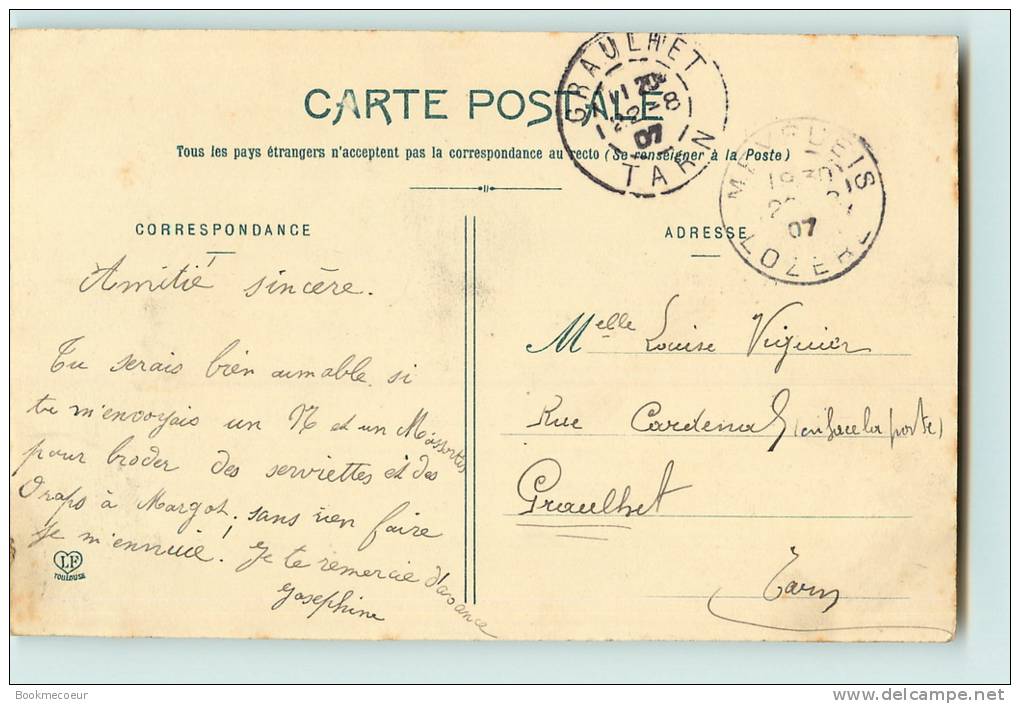 CARTE POSTALE
Tous les pays étrangers n'acceptent pas la correspondance au recto (Se renseigner à la Poste)
GRAULHET
07
TARN
LOZERE
07
CORRESPONDANCE
Amitié sincère.
Tu serais bien aimable si
tu m'envoyais un M et un M assortis
pour broder des serviettes et des
Draps à Margot; sans rien faire
je m'ennuie! Je te remercie d'avance
Josephine
LF
TOULOUSE
ADRESSE
Melle Louise Viguier
Rue Cardenal (en face la poste)
Graulhet
Tarn
Bookmecoeur
delcampe.net